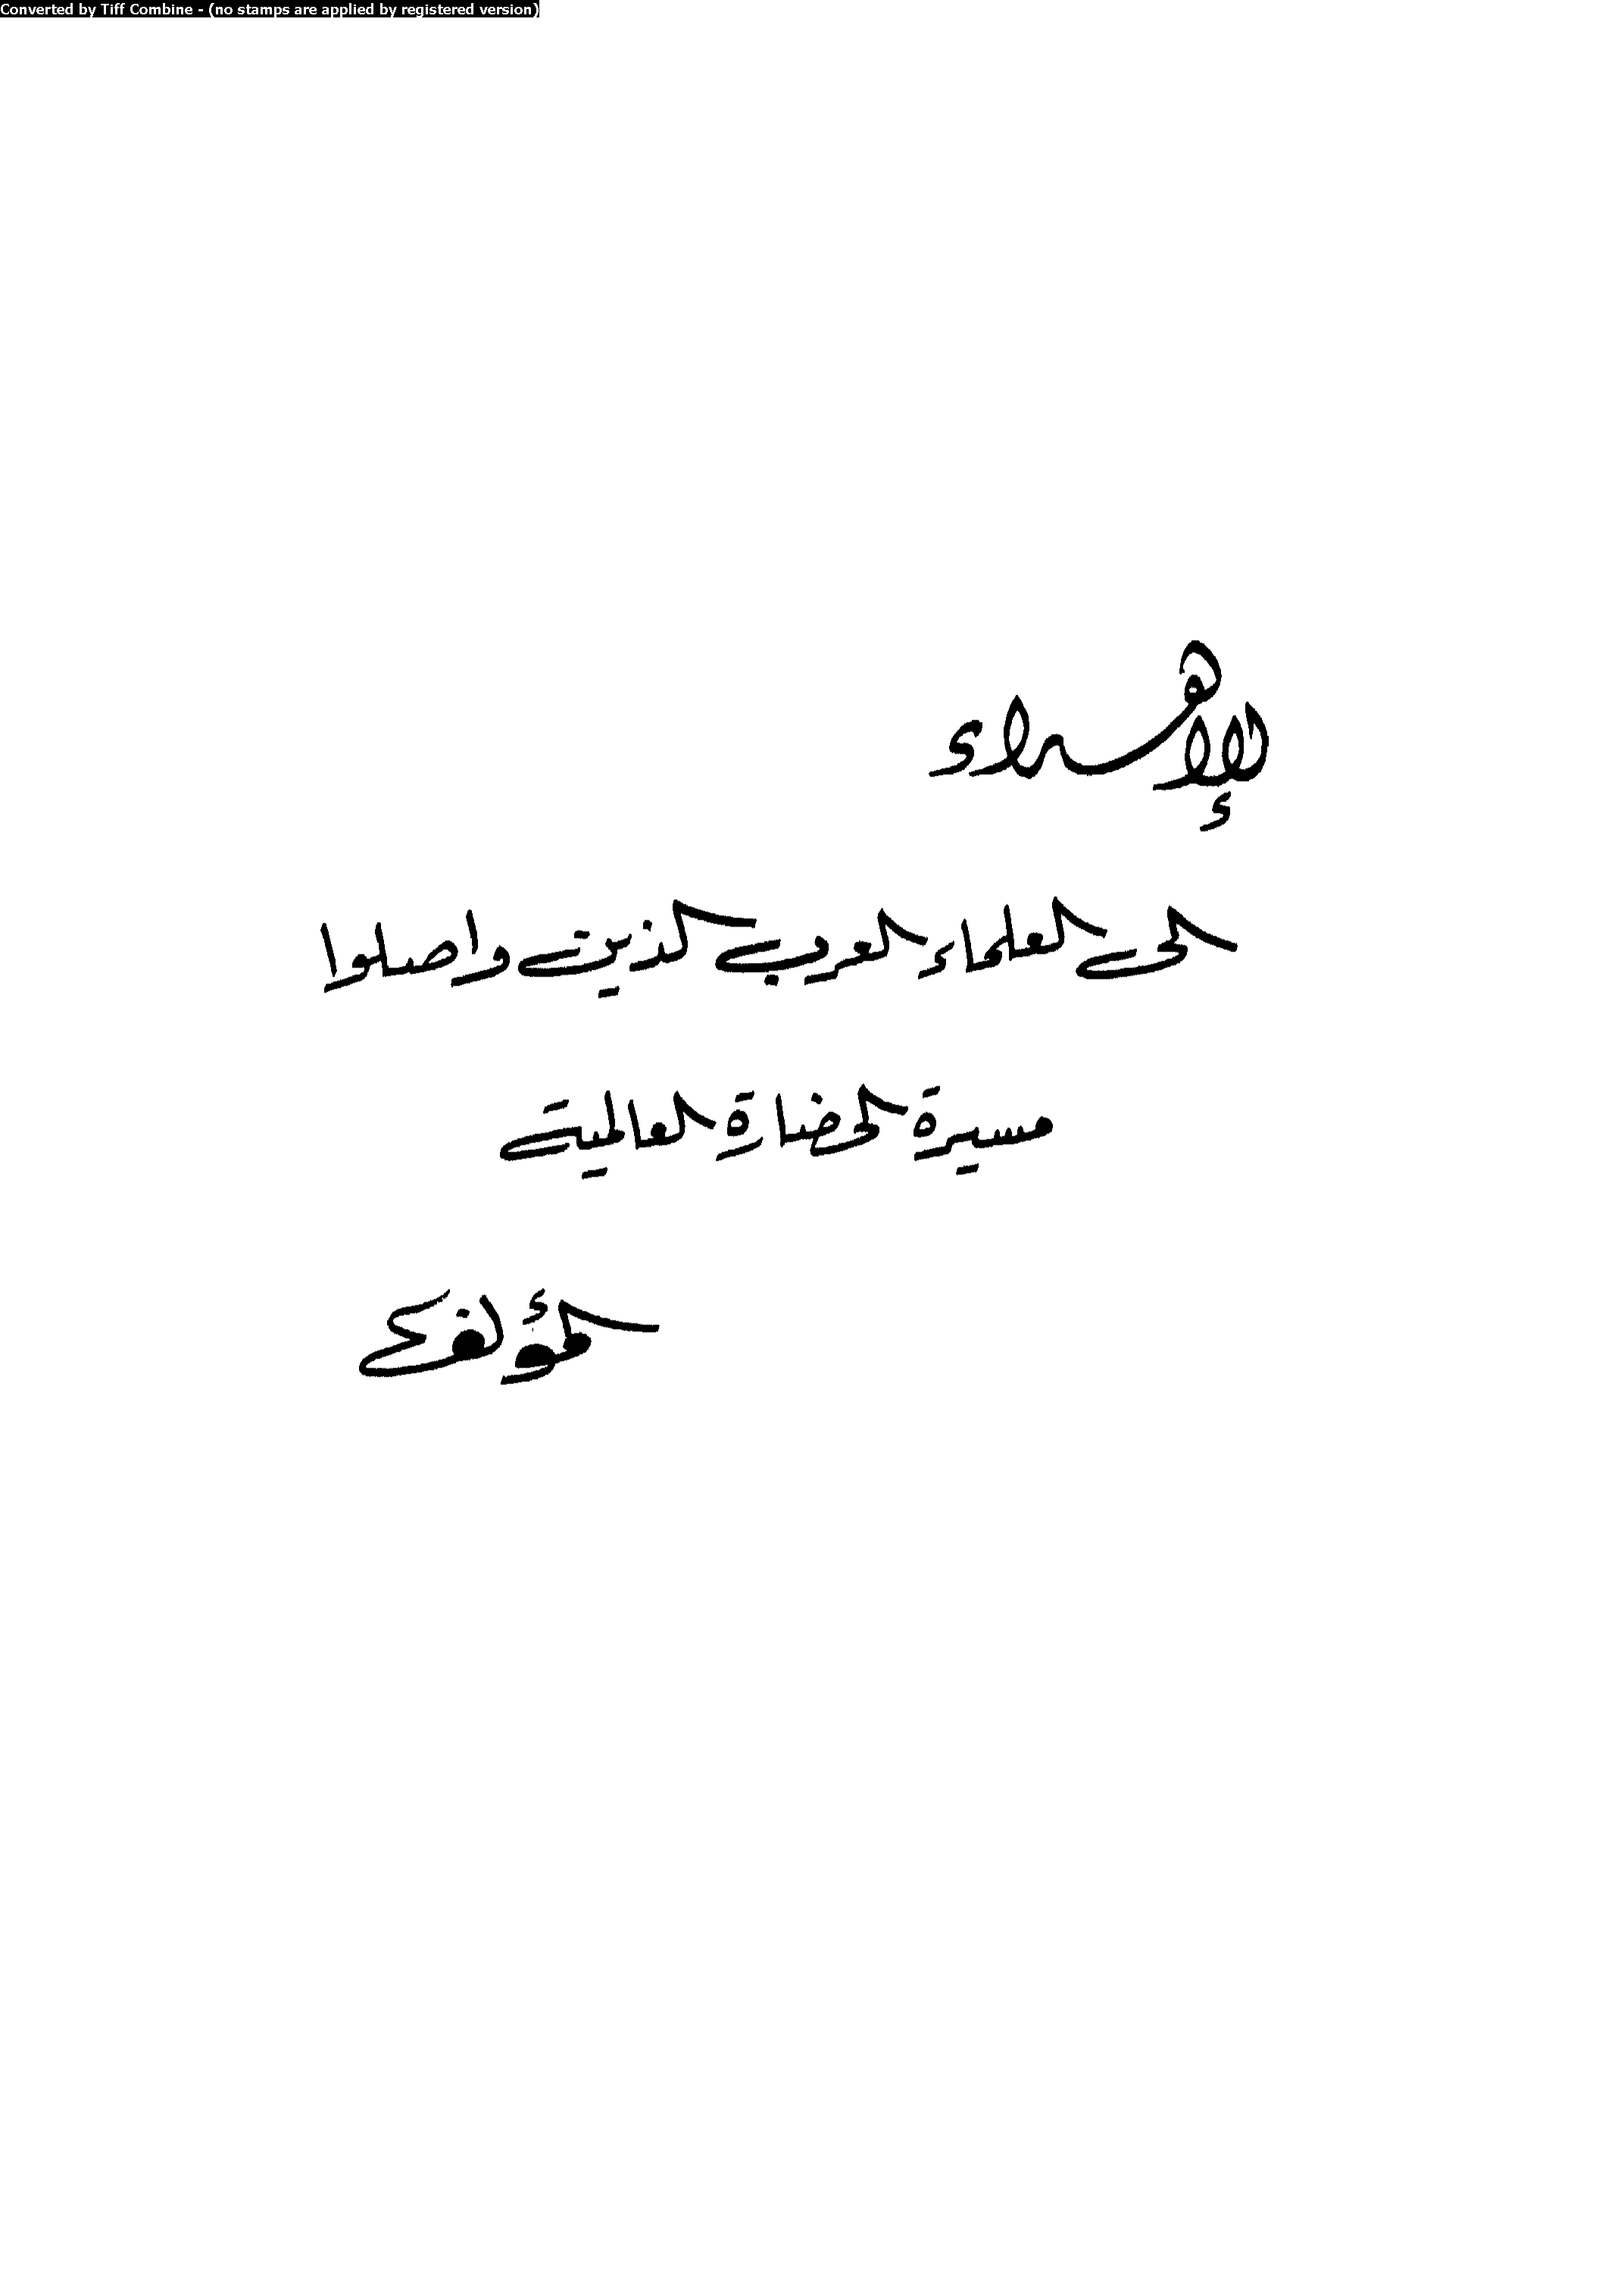 Converted by Tiff Combine - (no stamps are applied by registered version)
الإهداء
الى العلماء العرب الذين واصلوا
مسيرة الحضارة العالمية
المؤلف